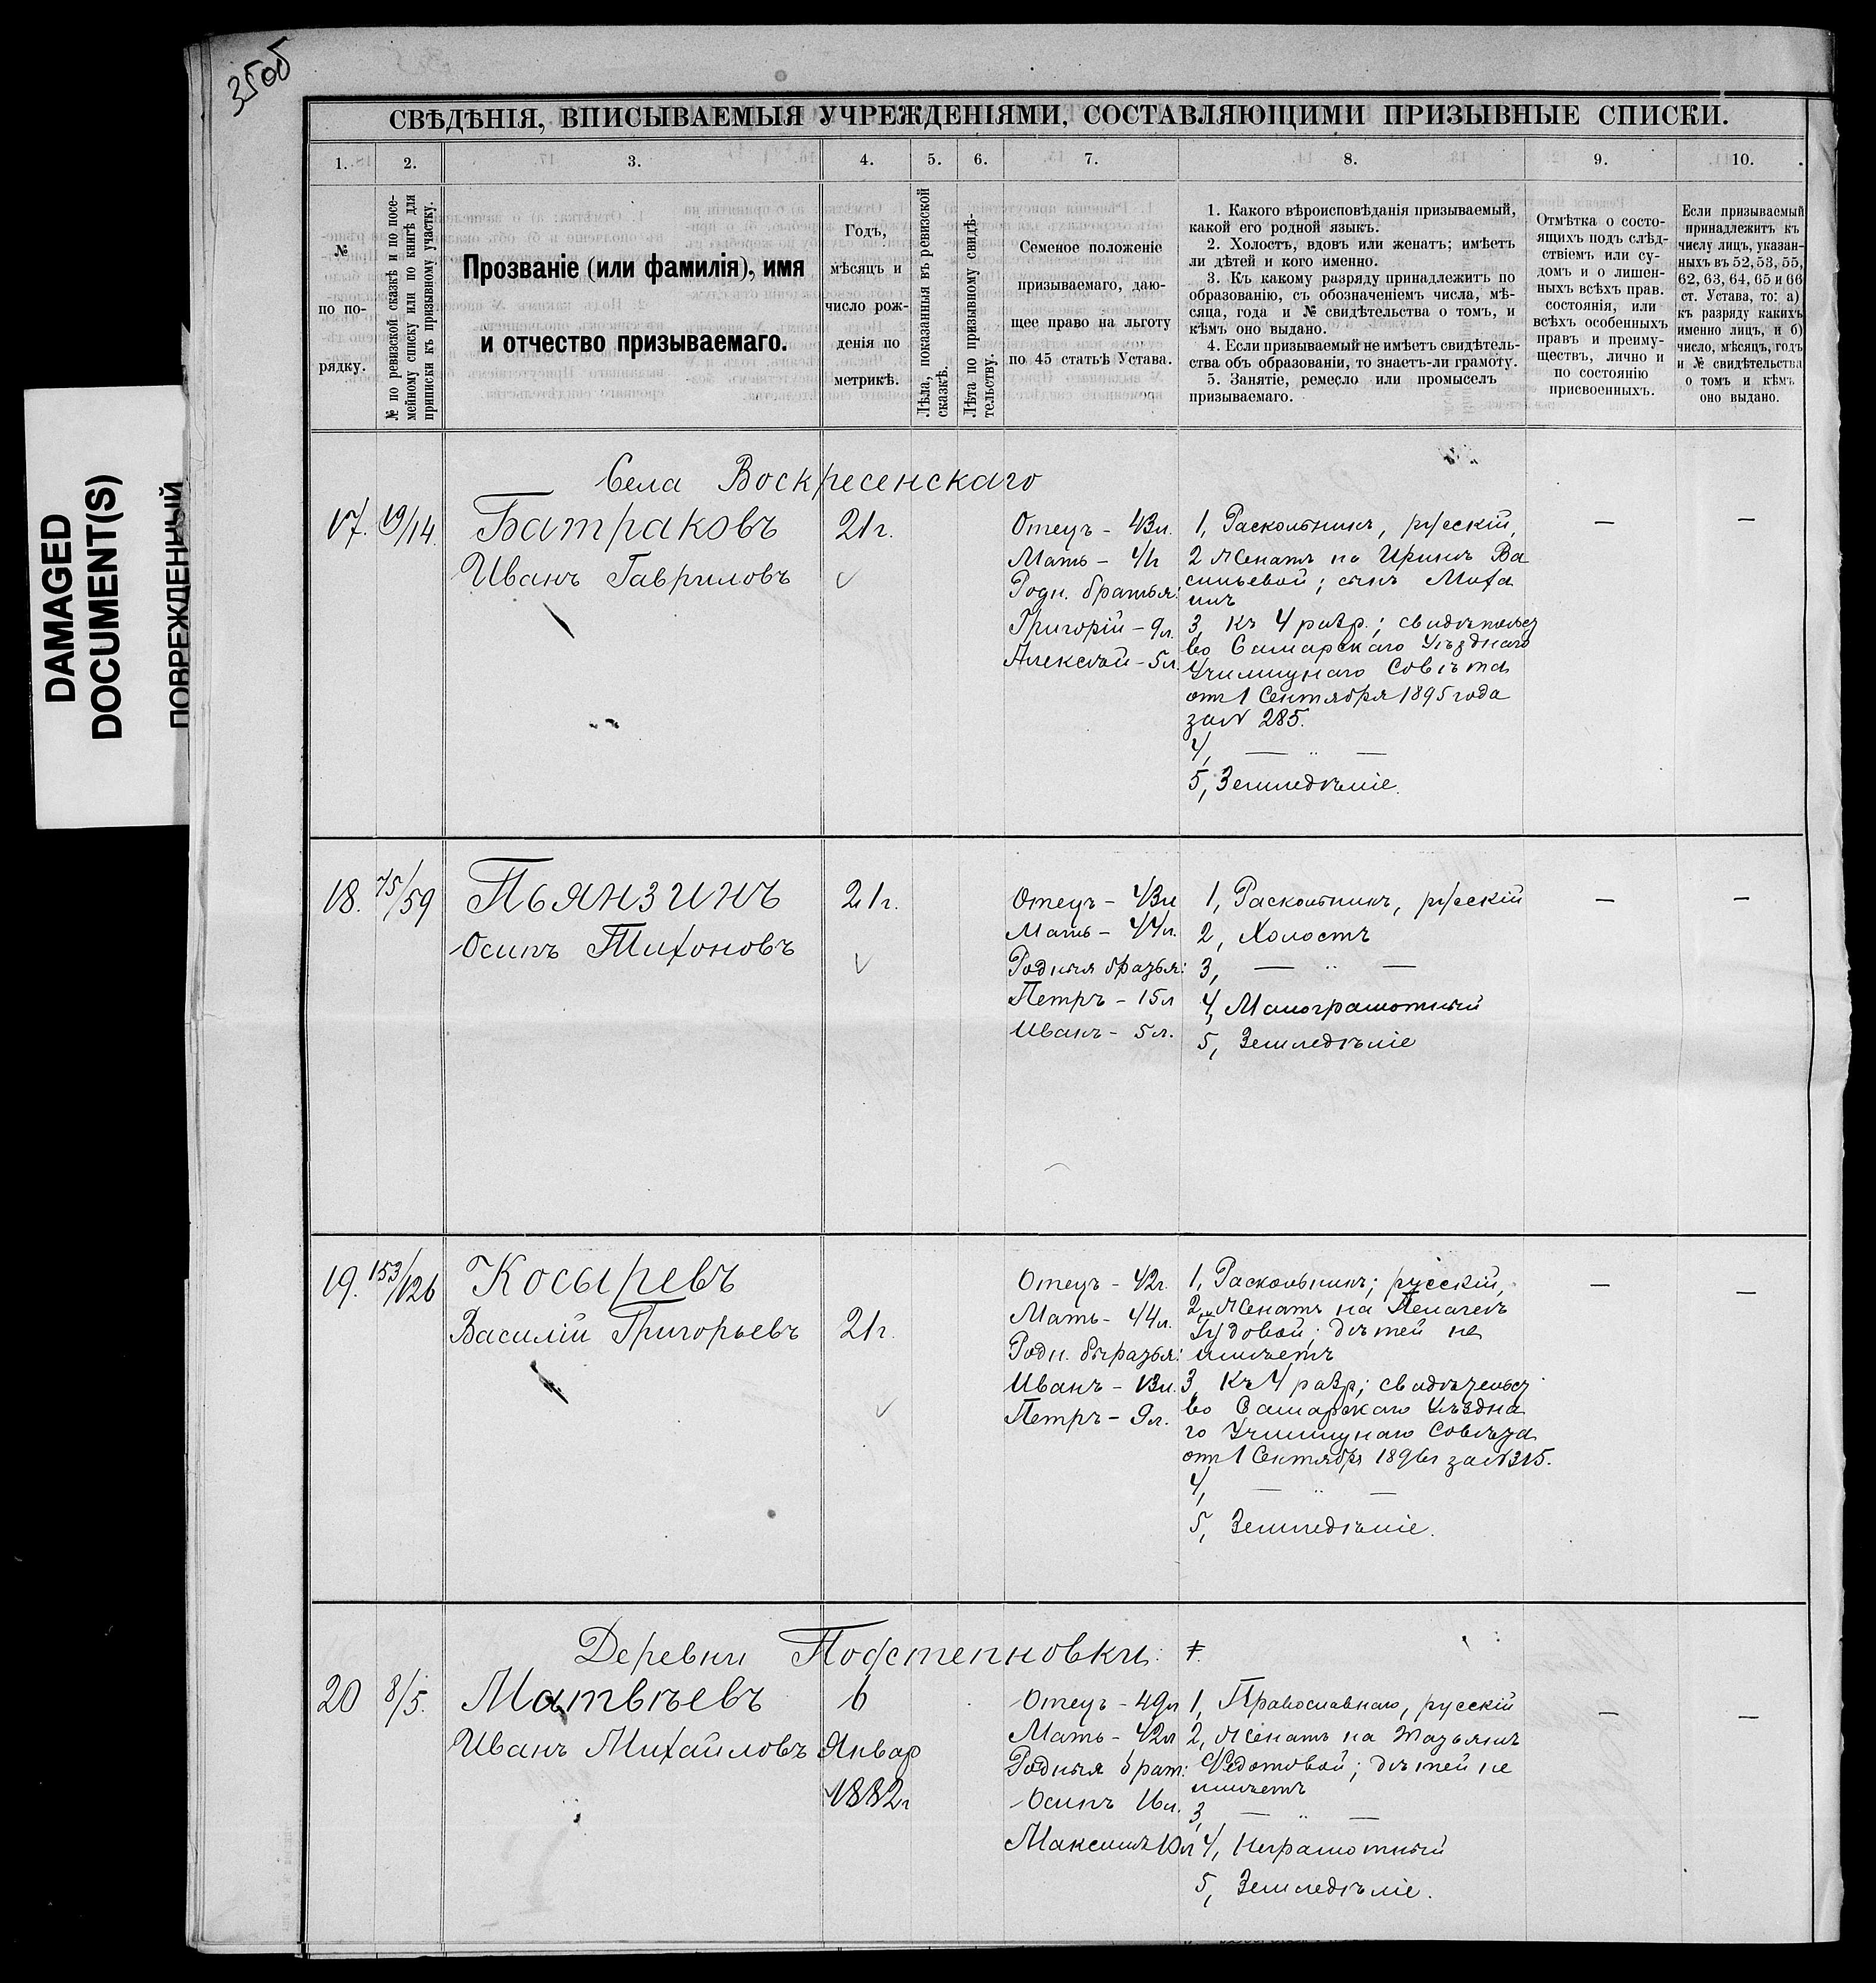 35об
DAMAGED
DOCUMENT(S)
ПОВРЕЖДЕННЫЙ
СВѢДѢНІЯ, ВПИСЫВАЕМЫЯ УЧРЕЖДЕНІЯМИ, СОСТАВЛЯЮЩИМИ ПРИЗЫВНЫЕ СПИСКИ.
1. 2. 3. 4. 5. 6. 7. 8. 9. 10.
№
по по-
рядку.
№ по ревизской сказкѣ и по посе-
мейному списку или по книгѣ для
приписки къ призывному участку.
Прозваніе (или фамилія), имя
и отчество призываемаго.
Годъ,
мѣсяцъ и
число рож-
денія по
метрикѣ.
Лѣла, показанныя въ ревизской
сказкѣ.
Лѣта по призывному свидѣ-
тельству.
Семеное положеніе
призываемаго, даю-
щее право на льготу
по 45 статьѣ Устава.
1. Какого вѣроисповѣданія призываемый,
какой его родной языкъ.
2. Холостъ, вдовъ или женатъ; имѣетъ
ли дѣтей и кого именно.
3. Къ какому разряду принадлежитъ по
образованію, съ обозначеніемъ числа, мѣ-
сяца, года и № свидѣтельства о томъ, и
кѣмъ оно выдано.
4. Если призываемый не имѣетъ свидѣтель-
ства объ образованіи, то знаетъ-ли грамоту.
5. Занятіе, ремесло или промыселъ
призываемаго.
Отмѣтка о состо-
ящихъ подъ слѣд-
ствіемъ или су-
домъ и о лишен-
ныхъ всѣхъ прав.
состоянія, или
всѣхъ особенныхъ
правъ и преиму-
ществъ, лично и
по состоянію
присвоенныхъ.
Если призываемый
принадлежитъ къ
числу лицъ, указан-
ныхъ въ 52, 53, 55,
62, 63, 64, 65 и 66
ст. Устава, то: а)
къ разряду какихъ
именно лицъ, и б)
число, мѣсяцъ, годъ
и № свидѣтельства
о томъ и кѣмъ
оно выдано.
Села Воскресенскаго
17. 19/14.
Батраковъ
Иванъ Гавриловъ
21 г.
Отецъ - 43 л.
Мать - 41 г
Родн. братья:
Григорій - 9 л.
Алексѣй - 5 л.
1, Раскольникъ, русскій,
2 Женатъ на Иринѣ Ва
сильевой; сынъ Миха
илъ
3, Къ 4 разр.; свидѣтельст
во Самарскаго Уѣзднаго
Училищнаго Совѣта
от 1 Сентября 1895 года
за № 285.
4, — " —
5, Земледѣліе.
—
—
18. 75/59
Пьянзинъ
Осипъ Тихоновъ
21 г.
Отецъ - 43 л
Мать - 44 л.
Родныя братья:
Петръ - 15 л
Иванъ - 5 л.
1, Раскольникъ, русскій
2, Холостъ
3, — " —
4, Малограмотный
5, Земледѣліе
—
—
19. 153/126
Косыревъ
Василій Григорьевъ
21 г.
Отецъ - 42 г.
Мать - 44 л.
Родн. братья:
Иванъ - 13 л.
Петръ - 9 л.
1, Раскольникъ; русскій,
2, Женатъ на Пелагеѣ
дѣтей не
имѣетъ
3, Къ 4 разр; свидѣтельст
во Самарскаго Уѣздна
го Училищнаго Совѣта
от 1 Сентября 1896 г за № 315.
4, — " —
5, Земледѣліе.
—
—
Деревни Подстепновки:
20 8/5.
Матвѣевъ
Иванъ Михайловъ
6
Январ
1882 г
Отецъ - 49 л
Мать - 42 л
Родныя брат:
Осипъ 16 л.
Максимъ 10 л
1, Православнаго, русскій
2, Женатъ на Татьянѣ
Ѳедотовой; дѣтей не
имѣетъ
3, — " —
4, Неграмотный
5, Земледѣліе.
—
—